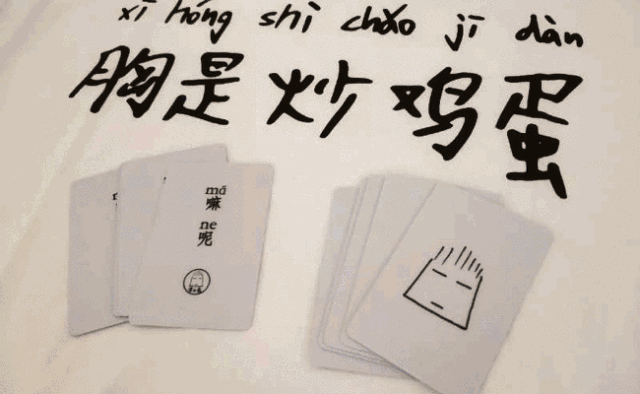 xī hóng shì chǎo jī dàn
胸是炒鸡蛋
má
嘛
ne
呢